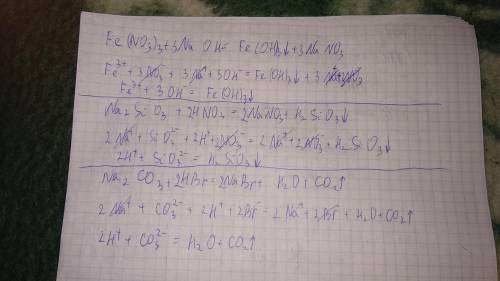 Fe(NO₃)₃+3Na OH= Fe(OH)₃↓+3Na NO₃
Fe³⁺+3NO₃⁻ + 3Na⁺+3OH⁻=Fe(OH)₃↓+3Na⁺+3NO₃⁻
Fe³⁺+ 3OH⁻= Fe(OH)₃↓
Na₂SiO₃ +2HNO₃=2NaNO₃+H₂SiO₃↓
2Na⁺+ SiO₃²⁻ +2H⁺+2NO₃⁻ = 2Na⁺+2NO₃⁻+H₂SiO₃↓
2H⁺+ SiO₃²⁻= H₂SiO₃↓
Na₂CO₃+2HBr=2NaBr+ H₂O+CO₂↑
2Na⁺ + CO₃²⁻ + 2H⁺+2Br⁻= 2Na⁺+2Br⁻+H₂O+CO₂↑
2H⁺ + CO₃²⁻ = H₂O+CO₂↑